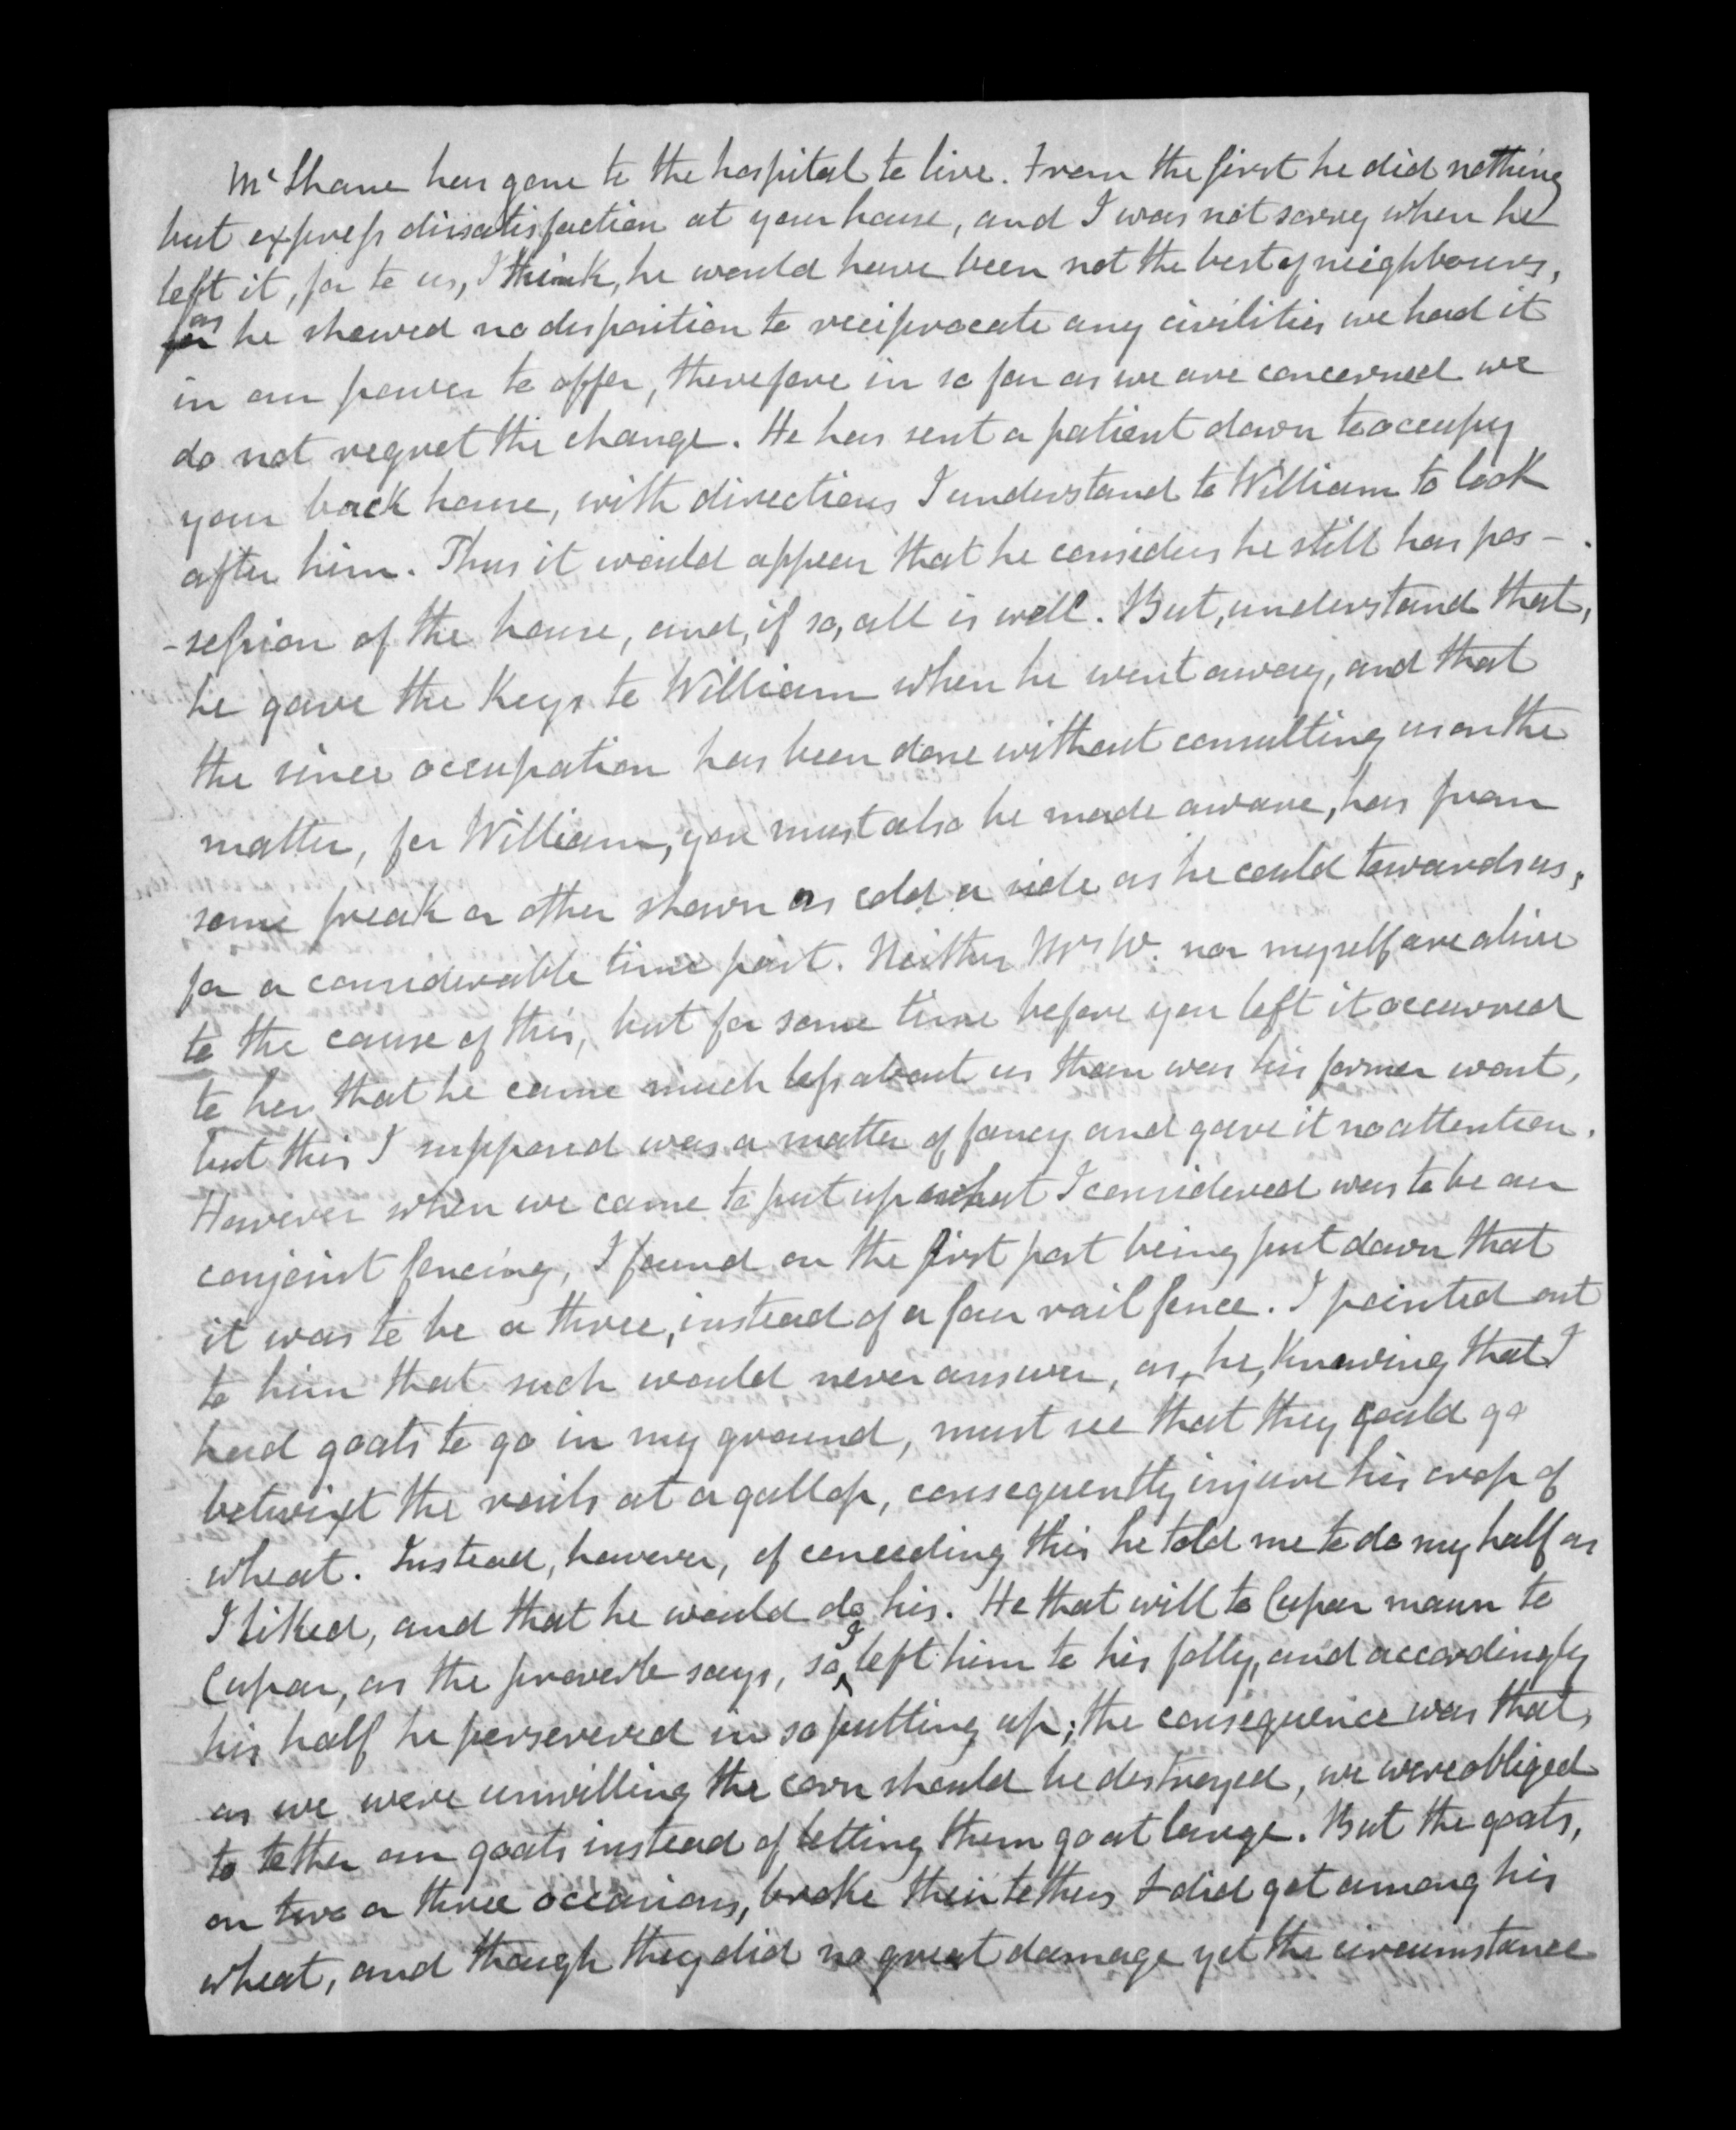 McShane has gone to the hospital to live. From the first he did nothing
but express dissatisfaction at your house, and I was not sorry when he
left it, for to us, I think, he would have been not the best of neighbours,
as
for he shewed no disposition to reciprocate any civilities we had it
in our power to offer, therefore in so far as we are concerned we
do not regret the change. He has sent a patient down to occupy
your back house, with directions I understand to William to look
after him. Thus it would appear that he considers he still has pos-
-session of the house, and, if so, all is well. But, understand that,
he gave the Keys to William when he went away, and that
the since occupation has been done without consulting us on the
matter, for William, you must also be made aware, has from
some freak or other shown as cold a side as he could towards us,
for a considerable time past. Neither Mrs W. nor myself are alive
to the cause of this, but for some time before you left it occurred
to her that he came much less about us than was his former wont,
but this I supposed was a matter of fancy and gave it no attention.
However when we came to put up what I considered was to be our
conjoint fencing, I found on the first post being put down that
it was to be a three, instead of a four rail fence. I pointed out
to him that such would never answer, as, he, Knowing that I
had goats to go in my ground, must see that they could go
betwixt the rails at a gallop, consequently injure his crop of
wheat. Instead, however, of conceeding this he told me to do my half as
I liked, and that he would do his. He that will to Cupar maun to
Cupar, as the proverb says, so I left him to his folly, and accordingly
his half he persevered in so putting up; the consequence was that,
as we were unwilling the corn should be destroyed, we were obliged
to tether our goats instead of letting them go at large. But the goats,
on two or three occasions, broke their tethers & did get among his
wheat, and though they did no great damage yet the circumstance